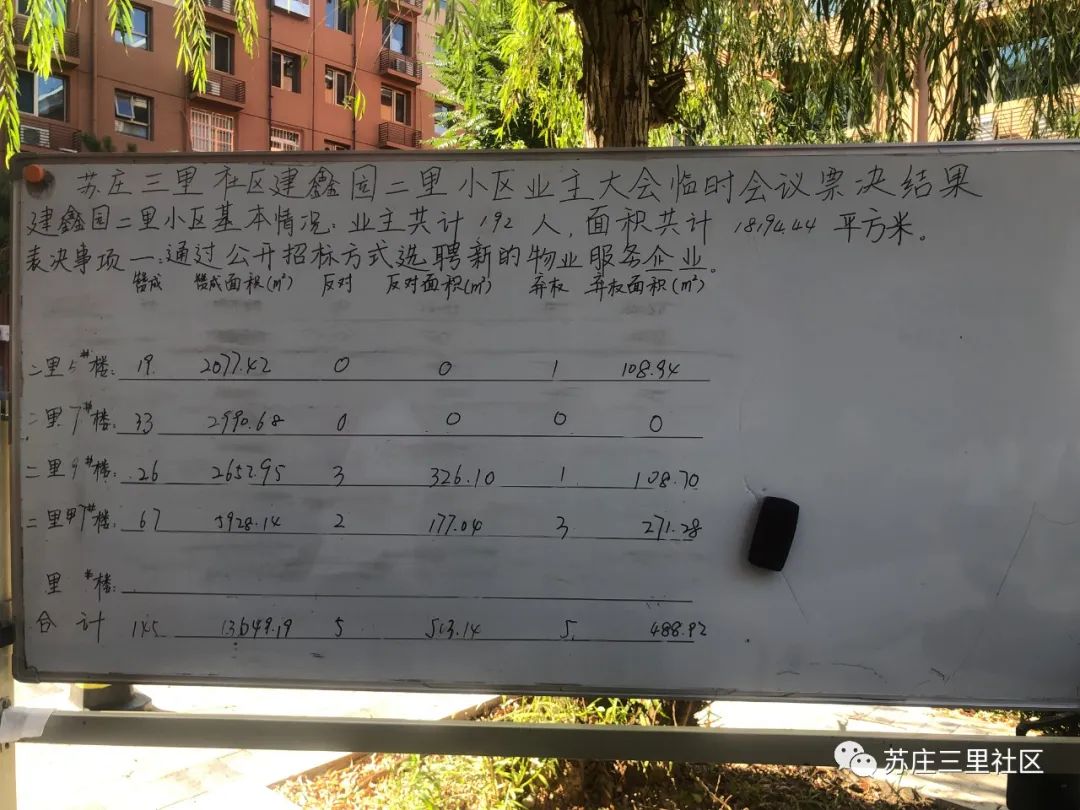 苏庄三里社区建鑫园二里小区业主大会临时会议票决结果
建鑫园二里小区基本情况：业主共计192人，面积共计18194.44平方米。
表决事项一：通过公开招标方式选聘新的物业服务企业。
赞成 赞成面积(m²) 反对 反对面积(m²) 弃权 弃权面积(m²)
二里5#楼： 19 2077.42 0 0 1 108.94
二里7#楼： 33 2990.68 0 0 0 0
二里9#楼： 26 2652.95 3 326.10 1 108.70
二里甲7#楼： 67 5928.14 2 177.04 3 271.28
里 #楼：
合计 145 13649.19 5 503.14 5 488.92
苏庄三里社区